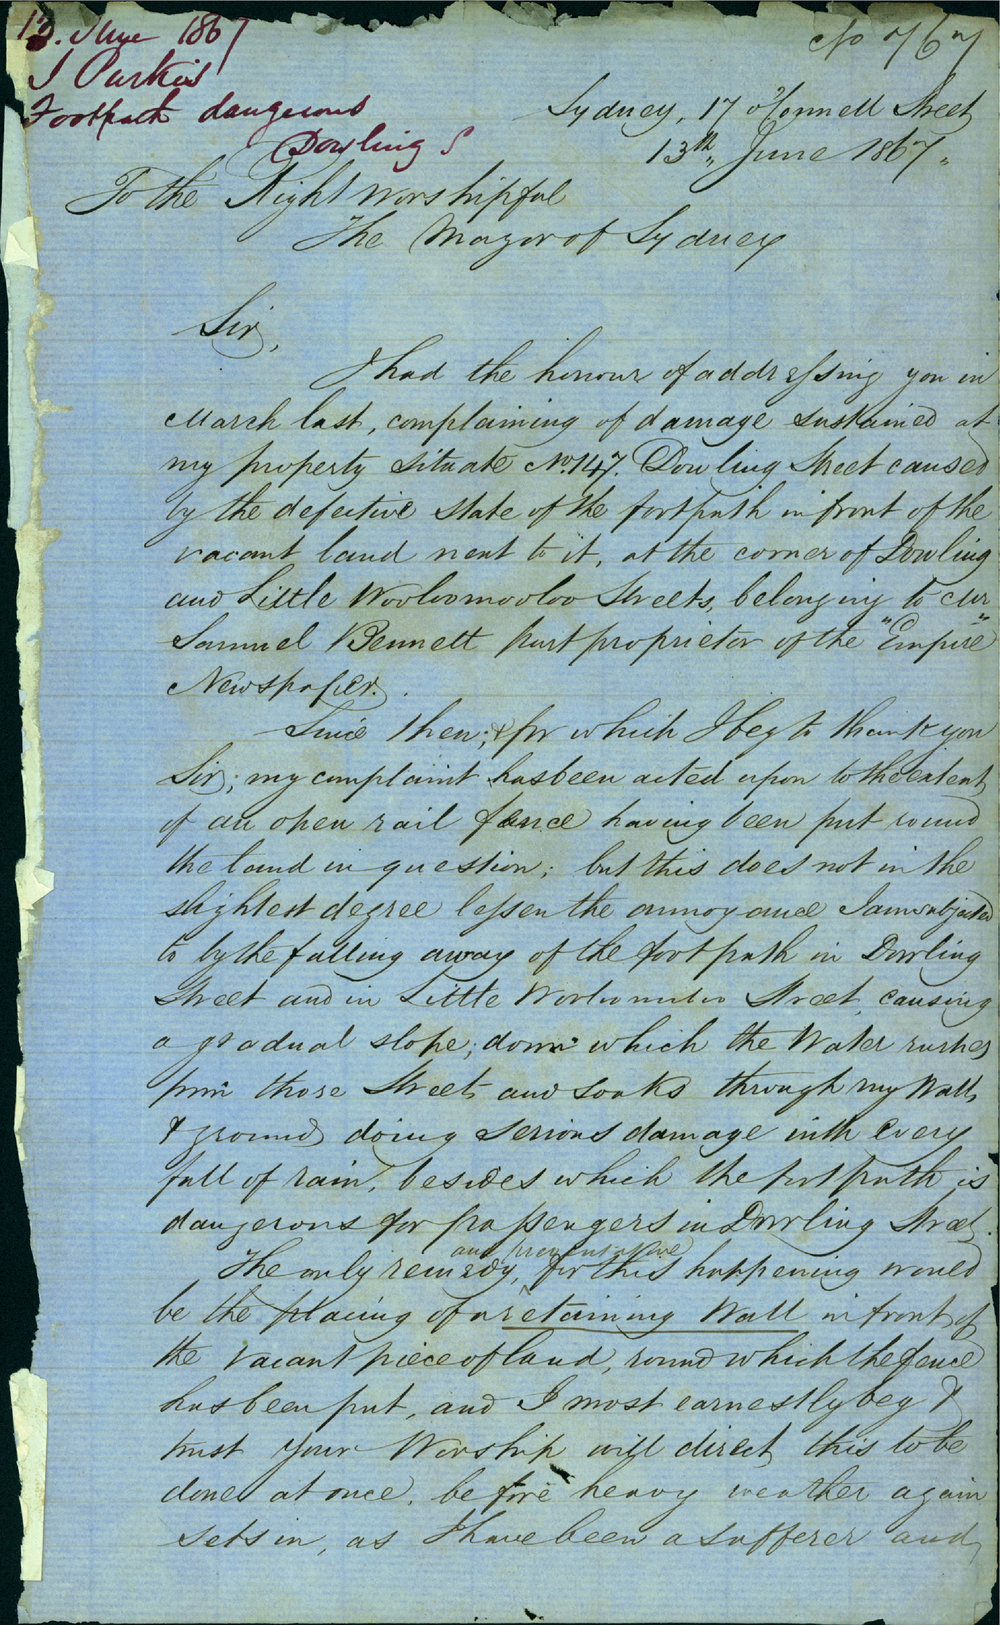 13. June 1867
J Purkis
Footpath dangerous
Dowling S
No 767
Sydney, 17 O'Connell Street
13th „ June 1867 „
To the Right Worshipful
The Mayor of Sydney
Sir,
I had the honour of addressing you in
March last, complaining of damage sustained at
my property situate No. 147. Dowling Street caused
by the defective state of the footpath in front of the
vacant land next to it, at the corner of Dowling
and Little Wooloomooloo Streets, belonging to Mr
Samuel Bennett part proprietor of the "Empire"
Newspaper.
Since then; & for which I beg to thank you
Sir; my complaint has been acted upon to the extent
of an open rail fence having been put round
the land in question; but this does not in the
slightest degree lessen the annoyance I am subjected
to by the falling away of the footpath in Dowling
Street and in Little Wooloomooloo Street, causing
a gradual slope; down which the Water rushes
from those Streets and soaks through my Walls
& ground doing serious damage with every
fall of rain, besides which the footpath is
dangerous for passengers in Dowling Street.
and preventative
The only remedy, for this happening would
be the placing of a retaining Wall in front of
the vacant piece of land, round which the fence
has been put, and I most earnestly beg &
trust Your Worship will direct this to be
done at once, before heavy weather again
sets in, as I have been a sufferer and